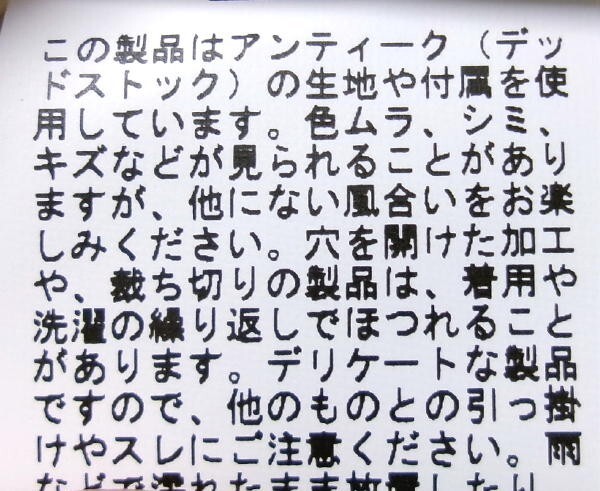 この製品はアンティーク（デッ
ドストック）の生地や付属を使
用しています。色ムラ、シミ、
キズなどが見られることがあり
ますが、他にない風合いをお楽
しみください。穴を開けた加工
や、裁ち切りの製品は、着用や
洗濯の繰り返しでほつれること
があります。デリケートな製品
ですので、他のものとの引っ掛
けやスレにご注意ください。雨
などで濡れたまま放置したり